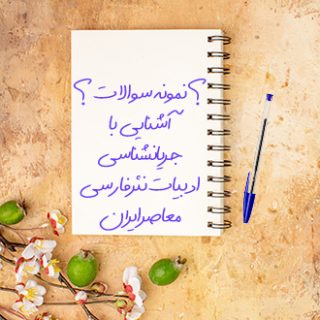 ؟ نمونه سوالات ؟
آشنایی با
جریانشناسی
ادبیات نثر فارسی
معاصر ایران